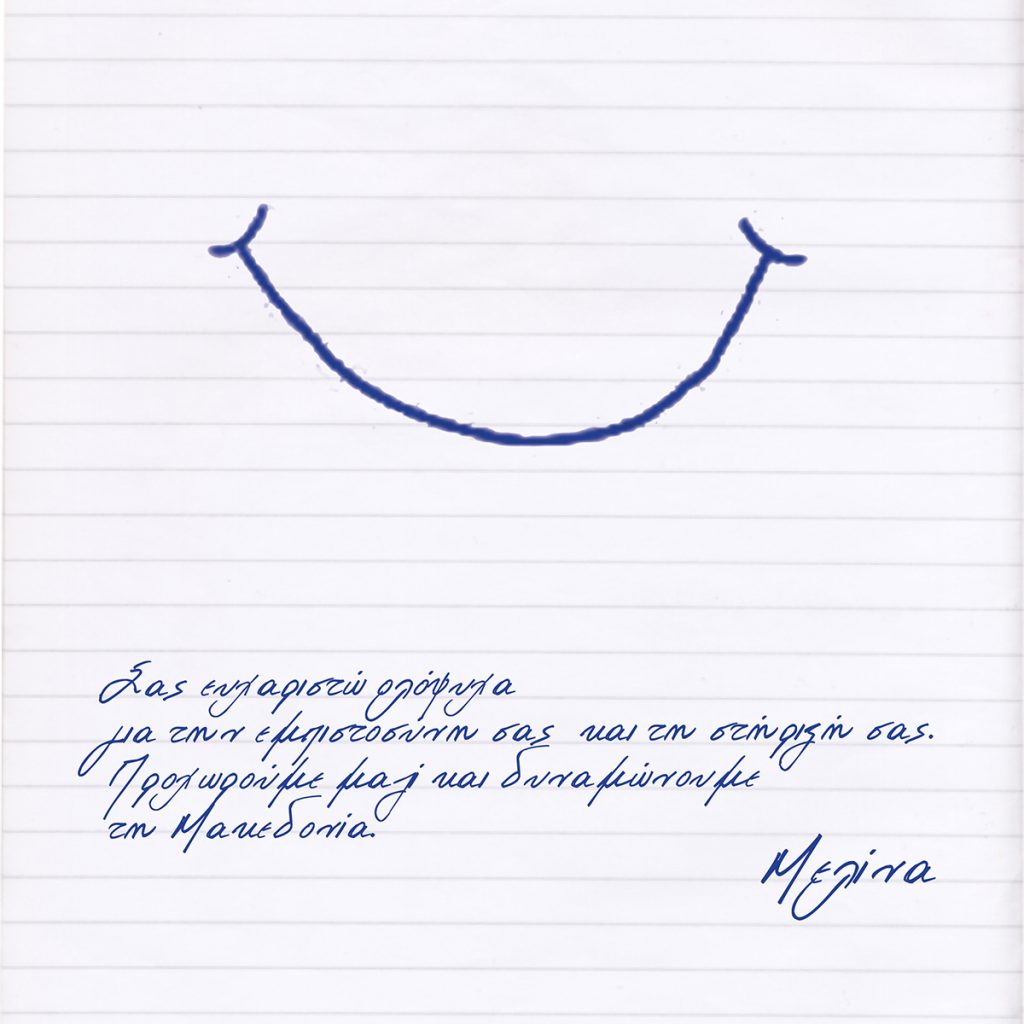 Σας ευχαριστώ ολόψυχα
για την εμπιστοσύνη σας και τη στήριξή σας.
Προχωρούμε μαζί και δυναμώνουμε
τη Μακεδονία.
Μελίνα